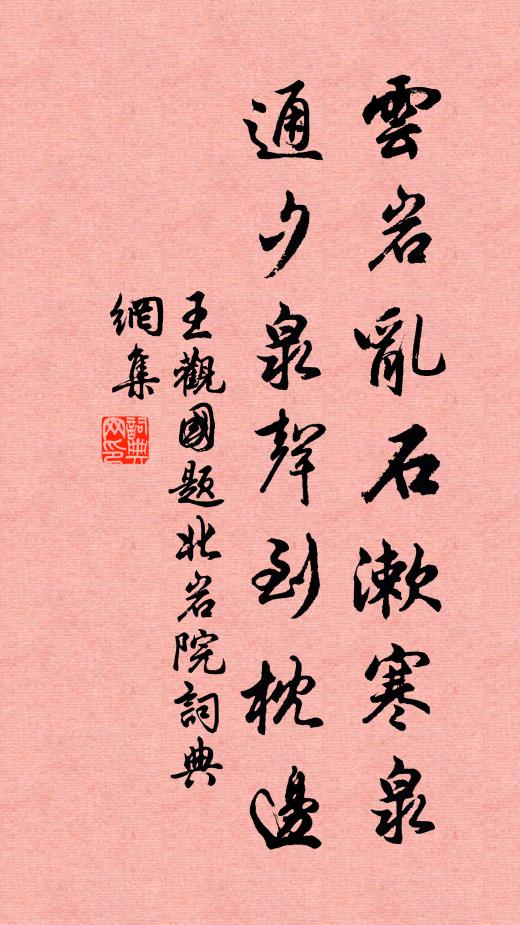 雲岩亂石漱寒泉
通夕泉聲到枕邊
王觀國題北岩院詞典
網集
詞典網印